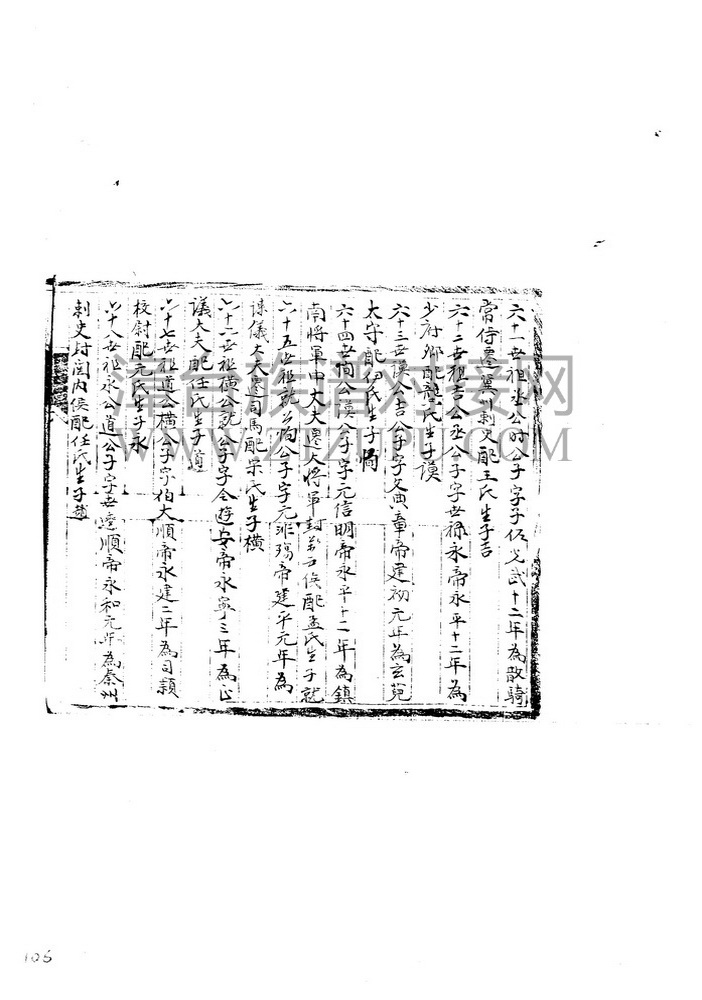 六十一世祖丞公時公子字子伍光武十二年為散騎
常侍遷冀州刺史配王氏生子吉
六十二世祖吉公丞公子字世祿永帝永平十二年為
少府卿配龍氏生子謨
六十三世謨公吉公子字文典章帝建初元年為玄菀
太守配何氏生子恂
六十四世恂公謨公子字元信明帝永平十二年為鎮
南將軍中大夫遷大將軍封萬戶侯配孟氏生子就
六十五世祖就公恂公子字元非殤帝建平元年為
諫儀大夫遷司馬配宋氏生子橫
六十六世祖橫公就公子字令遊安帝永寧三年為正
議大夫配任氏生子道
六十七世祖道公橫公子字伯大順帝永建二年為司穎
校尉配元氏生子永
六十八世祖永公道公子字世達順帝永和元年為秦州
刺史封關內侯配任氏生子越
漳台族谱对接网
WWW.ZTZUPU.COM
105